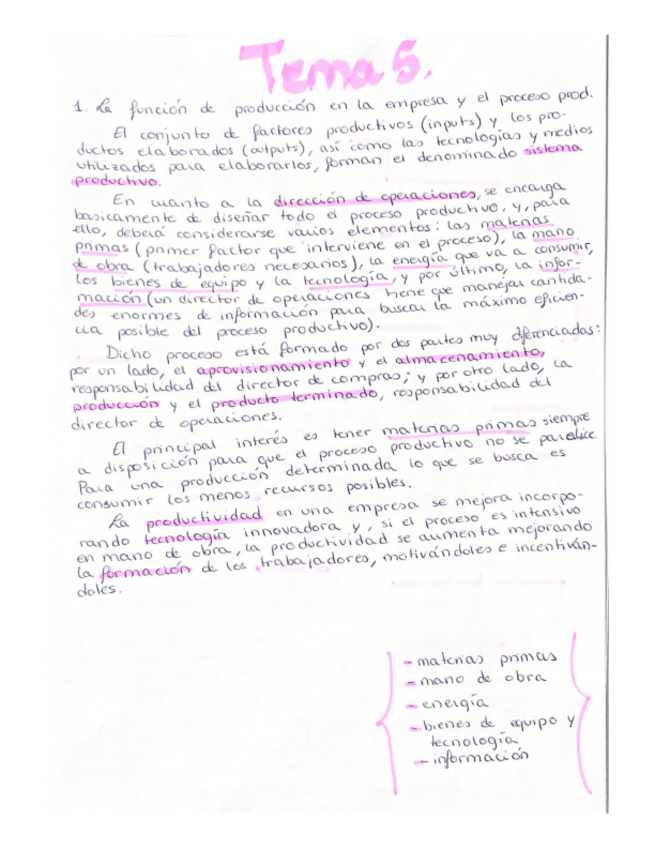 Tema 5.
1. La función de producción en la empresa y el proceso prod.
El conjunto de factores productivos (inputs) y los pro-
ductos elaborados (outputs), así como las tecnologías y medios
utilizados para elaborarlos, forman el denominado sistema
productivo.
En cuanto a la dirección de operaciones, se encarga
basicamente de diseñar todo el proceso productivo, y, para
ello, deberá considerarse varios elementos: las materias
primas (primer factor que interviene en el proceso), la mano
de obra (trabajadores necesarios), la energía que va a consumir,
los bienes de equipo y la tecnología, y por último, la infor-
mación (un director de operaciones tiene que manejar cantida-
des enormes de información para buscar la máximo eficien-
cia posible del proceso productivo).
Dicho proceso está formado por dos partes muy diferenciadas:
por un lado, el aprovisionamiento y el almacenamiento,
responsabilidad del director de compras; y por otro lado, la
producción y el producto terminado, responsabilidad del
director de operaciones.
El principal interés es tener materias primas siempre
a disposición para que el proceso productivo no se paralice.
Para una producción determinada lo que se busca es
consumir los menos recursos posibles.
La productividad en una empresa se mejora incorpo-
rando tecnología innovadora y, si el proceso es intensivo
en mano de obra, la productividad se aumenta mejorando
la formación de los trabajadores, motivándoles e incentiván-
doles.
- materias primas
- mano de obra
- energía
- bienes de equipo y
tecnología
- información